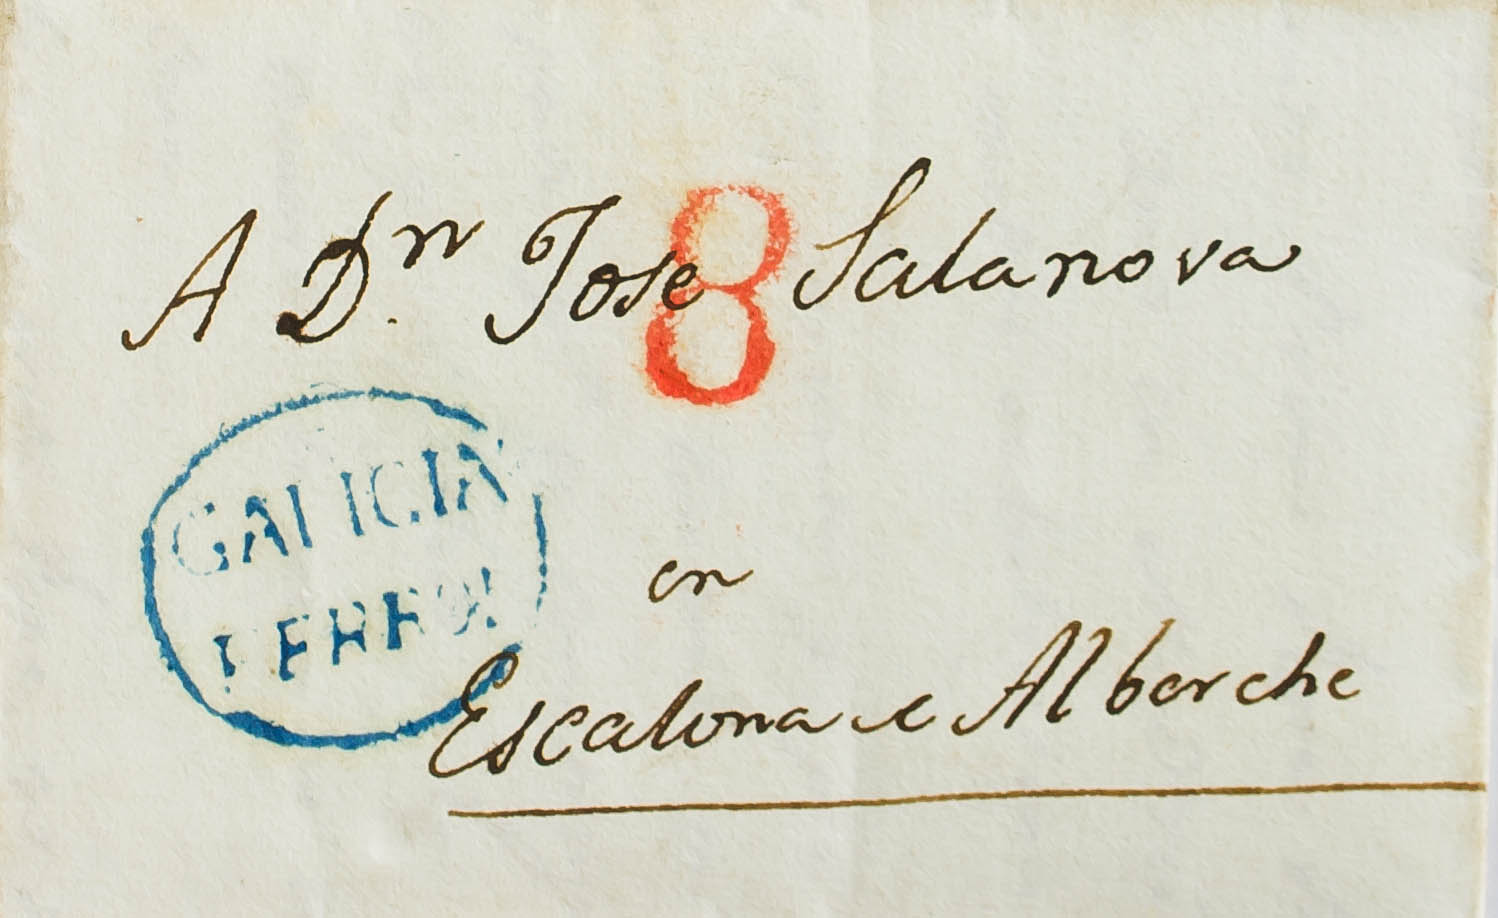 A Dn. Jose Salanova
8
GALICIA
FERROL
en
Escalona e Alberche